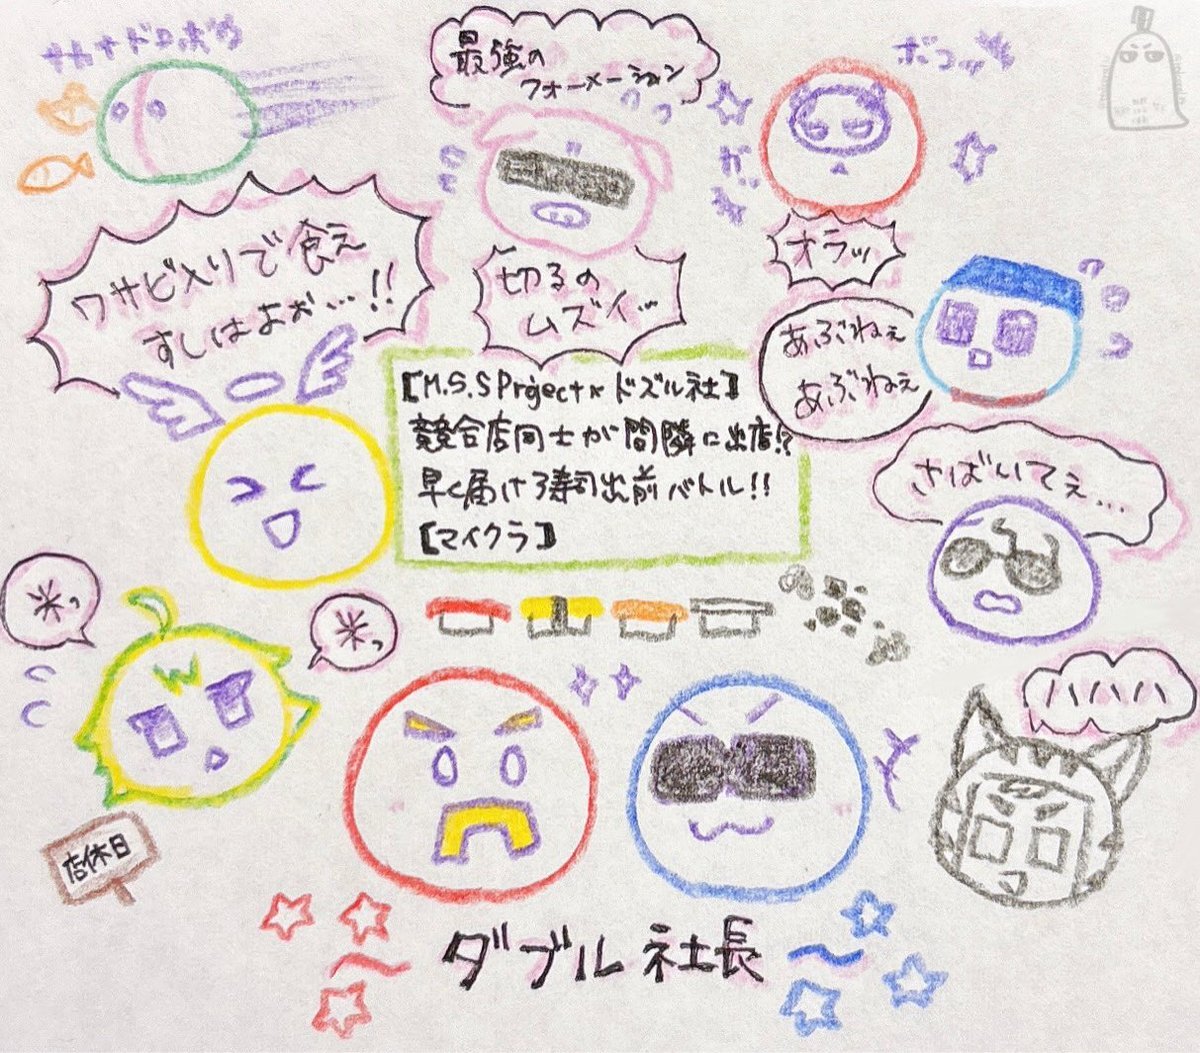 サカナドロボウ
最強の
フォーメーション
ボコッ
ガッ
オラッ
ワサビ入りで食え
すしはよぉ…!!
切るの
ムズイッ
あぶねぇ
あぶねぇ
【M.S.S Prgject×ドズル社】
競合店同士が間隣に出店!?
早く届けろ寿司出前バトル!!
【マイクラ】
さばいてぇ…
米っ
米っ
ハハハハ
店休日
ダブル社長